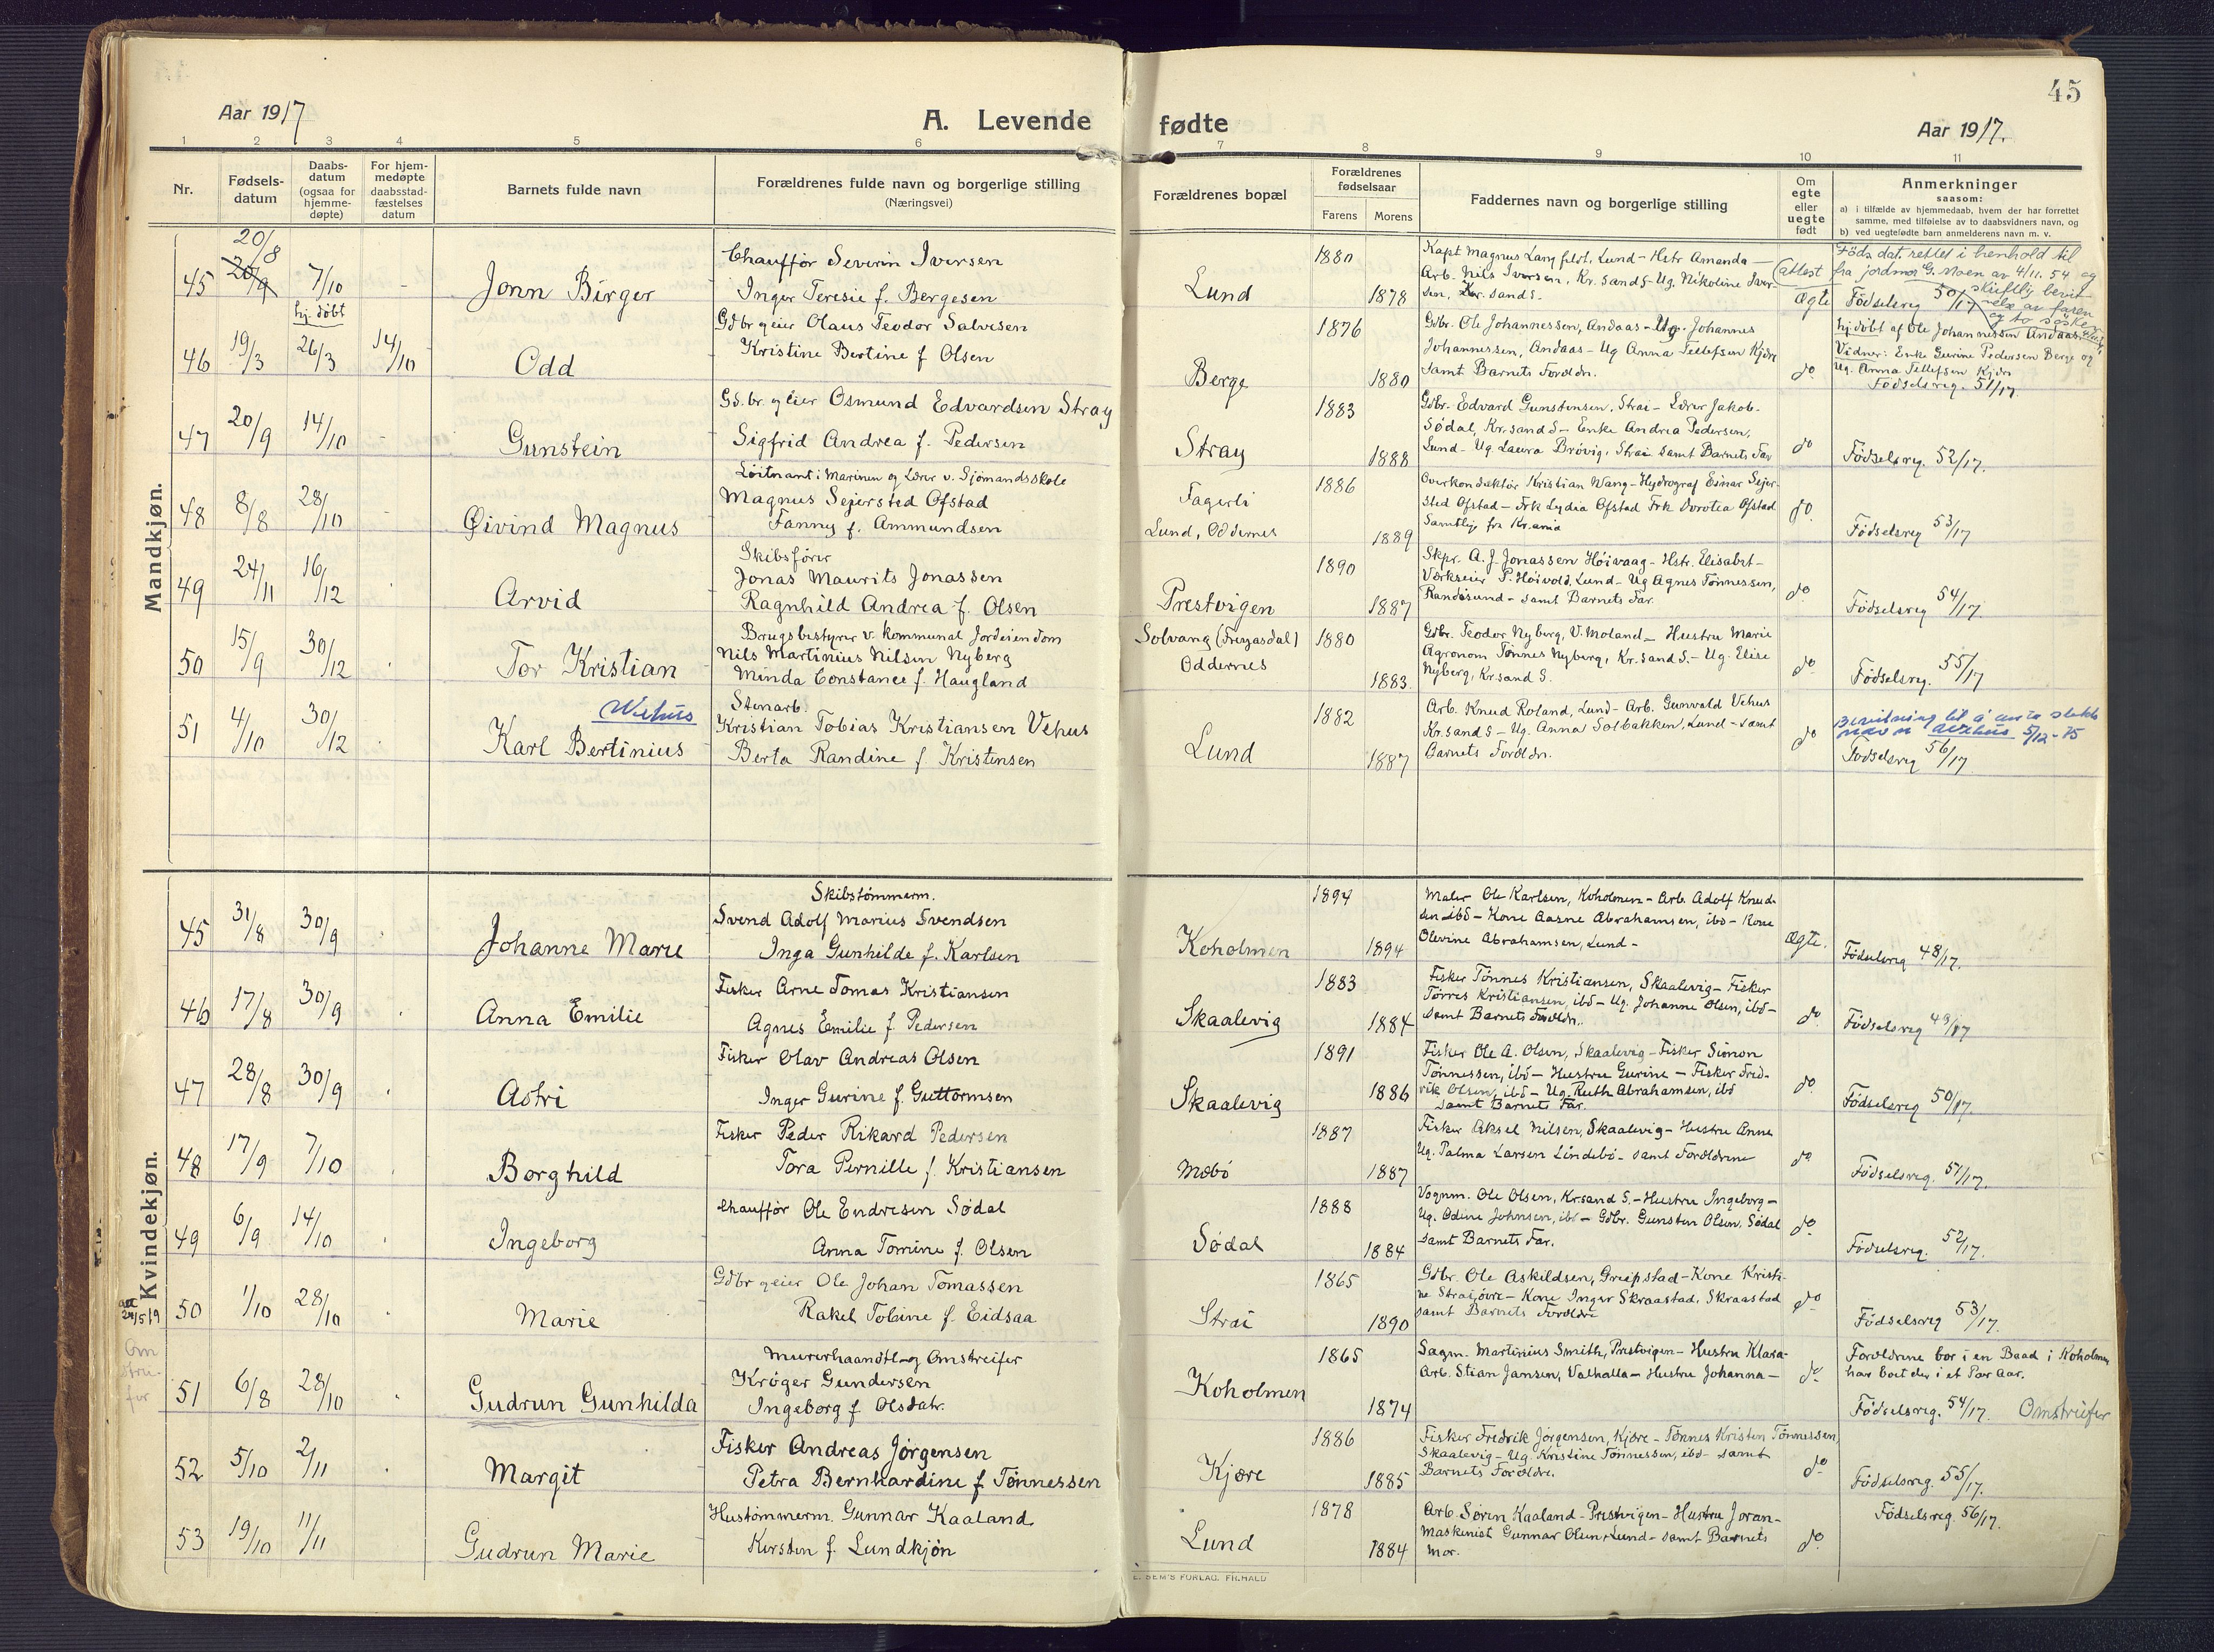 45
Aar 1917
A. Levende fødte
Aar 1917.
1 2 3 4 5 6 7 8 9 10 11
Nr.
Fødsels-
datum
Daabs-
datum
(ogsaa for
hjemme-
døpte)
For hjem-
medøpte
daabsstad-
fæstelses
datum
Barnets fulde navn
Forældrenes fulde navn og borgerlige stilling
(Næringsvei)
Forældrenes bopæl
Forældrenes
fødselsaar
Farens Morens
Faddernes navn og borgerlige stilling
Om
egte
eller
uegte
født
Anmerkninger
saasom:
a) i tilfælde av hjemmedaab, hvem der har forrettet
samme, med tilføielse av to daabsvidners navn, og
b) ved uegtefødte barn anmelderens navn m. v.
Mandkjøn.
45 20/8 20/9 7/10 - Jonn Birger
Chauffør Severin Iversen
Inger Teresie f. Bergesen
Lund 1880 1878
Kapt Magnus Langfeldt, Lund - Hstr Amanda -
Arb. Nils Iversen, Kr. sand S - Ug. Nikoline Iver-
sen, Kr. sand S.
Ægte
Føds. dat. rettet i henhold til
(attest fra jordmor G. Moen av 4/11. 54 og
skriftlig bevit-
nelse av faren
og to søsken
Fødselsreg 50/17
46 19/3 hj. døbt 26/3 14/10 Odd
Gdbr og eier Olaus Teodor Salvesen
Kristine Bertine f Olsen
Berge 1876 1880
Gdbr. Ole Johannessen, Andaas - Ug. Johannes
Johannessen, Andaas - Ug Anna Tellefsen Kjær
samt Barnets Forældr.
do
hj. døbt af Ole Johannessen Andaas
Vidner: Enke Gurine Pedersen Berge og
Ug. Anna Tellefsen Kjær
Fødselsreg. 51/17.
47 20/9 14/10 - Gunstein
Gd. br. og eier Osmund Edvardsen Stray
Sigfrid Andrea f. Pedersen
Stray 1883 1888
Gdbr. Edvard Gunstensen, Strai - Lærer Jakob
Sødal, Kr.sand S - Enke Andrea Pedersen,
Lund - Ug. Laura Brøvig, Strai samt Barnets Far
do
Fødselsreg. 52/17.
48 8/8 28/10 - Øivind Magnus
Løitnant i Marinen og Lærer v. Sjømandsskole
Magnus Sejersted Ofstad
Fanny f. Ammundsen
Fagerli
Lund, Oddernes 1886 1889
Overkonduktør Kristian Wang - Hydrograf Einar Sejer-
sted Ofstad - Frk Lydia Ofstad Frk Dorotea Ofstad
Samtlig fra Kr.ania
do.
Fødselsreg 53/17
49 24/11 16/12 Arvid
Skibsfører
Jonas Maurits Jonassen
Ragnhild Andrea f. Olsen
Prestvigen 1890 1887
Skpr. A. J. Jonassen Høivaag - Hstr. Elisabet -
Værkseier P. Høivold, Lund - Ug Agnes Tønnessen,
Randøsund - samt Barnets Far.
do
Fødselsreg 54/17.
50 15/9 30/12 Tor Kristian
Brugsbestyrer v. kommunal Jordeiendom
Nils Martinius Nilsen Nyberg
Minda Constance f. Haugland
Solvang (Frøyasdal)
Oddernes 1880 1883
Gdbr. Teodor Nyberg, V. Moland - Hustru Marie
Agronom Tønnes Nyberg, Kr.sand S. - Ug. Elise
Nyberg, Kr.sand S.
do
Fødselsreg. 55/17
51 4/10 30/12 Karl Bertinius Wehus
Stenarb.
Kristian Tobias Kristiansen Vehus
Berta Randine f Kristensen
Lund 1882 1887
Arb. Knud Roland, Lund - Arb. Gunvald Vehus
Kr.sand S - Ug. Anna Solbakken, Lund - samt
Barnets Forældr.
do
Bevilning til å anta slekts
navn Wehus 5/12-75
Fødselsreg 56/17
Kvindekjøn.
45 31/8 30/9 Johanne Marie
Skibstømmerm.
Svend Adolf Marius Svendsen
Inga Gunhilde f. Karlsen
Koholmen 1894 1894
Maler Ole Karlsen, Koholmen - Arb. Adolf Knud-
sen ibd - Kone Aasne Abrahamsen, ibd - Kone
Olevine Abrahamsen, Lund -
Ægte.
Fødselsreg 48/17.
46 17/8 30/9 Anna Emilie
Fisker Arne Tomas Kristiansen
Agnes Emilie f. Pedersen
Skaalevig 1883 1884
Fisker Tønnes Kristiansen, Skaalevig - Fisker
Tørres Kristiansen, ibd - Ug. Johanne Olsen, ibd -
samt Barnets Forældr.
do
Fødselsreg 49/17
47 28/8 30/9 Astri
Fisker Olav Andreas Olsen
Inger Gurine f. Guttormsen
Skaalevig 1891 1886
Fisker Ole A. Olsen, Skaalevig - Fisker Simon
Tønnessen, ibd - Hustru Gurine - Fisker Fred-
rik Olsen, ibd - Ug. Ruth Abrahamsen, ibd
samt Barnets Far.
do
Fødselsreg 50/17.
48 17/9 7/10 Borghild
Fisker Peder Rikard Pedersen
Tora Pernille f. Kristiansen
Mæbø 1887 1887
Fisker Aksel Nilsen, Skaalevig - Hustru Anne
Ug. Palma Larsen Lindebø - samt Forældrene
do
Fødselsreg. 51/17.
49 6/9 14/10 Ingeborg
Chauffør Ole Endresen Sødal
Anna Tomine f. Olsen
Sødal 1888 1884
Vognm. Ole Olsen, Kr.sand S. - Hustru Ingeborg -
Ug. Odine Johnsen, ibd - Gdbr. Gunsten Olsen, Sødal
samt Barnets Far.
do
Fødselsreg. 52/17.
50 1/10 28/10 Marie
Gdbr og eier Ole Johan Tomassen
Rakel Tobine f. Eidsaa
Strai 1865 1890
Gdbr. Ole Askildsen, Greipstad - Kone Kristi-
ne Straiøvre - Kone Inger Skraastad, Skraastad
samt Barnets Forældre
do
Fødselsreg 53/17.
Om
strei-
fer
51 6/8 28/10 Gudrun Gunhilda
Murerhaandtl. og Omstreifer
Krøger Gundersen
Ingeborg f Olsdatr.
Koholmen 1865 1874
Sagm. Martinius Smith, Prestvigen - Hustru Klara -
Arb. Stian Jansen, Valhalla - Hustru Johanna -
do
Forældrene bor i en Baad i Koholmen
har boet der i et Par Aar.
Fødselsreg. 54/17. Omstreifer
52 5/10 2/11 Margit
Fisker Andreas Jørgensen
Petra Bernhardine f Tønnessen
Kjære 1886 1885
Fisker Fredrik Jørgensen, Kjære - Tønnes Kristen Tønnessen,
Skaalevig - Ug. Kristine Tønnessen, ibd - samt
Barnets Forældre.
do
Fødselsreg. 55/17.
53 19/10 11/11 Gudrun Marie
Hustømmerm. Gunnar Kaaland
Kirsten f. Lundkjøn
Lund 1878 1884
Arb. Søren Kaaland - Prestvigen - Hustru Joran -
Maskinist Gunnar Olsen, Lund - samt Barnets
Mor.
do
Fødselsreg. 56/17.
E. SEM'S FORLAG, FR.HALD